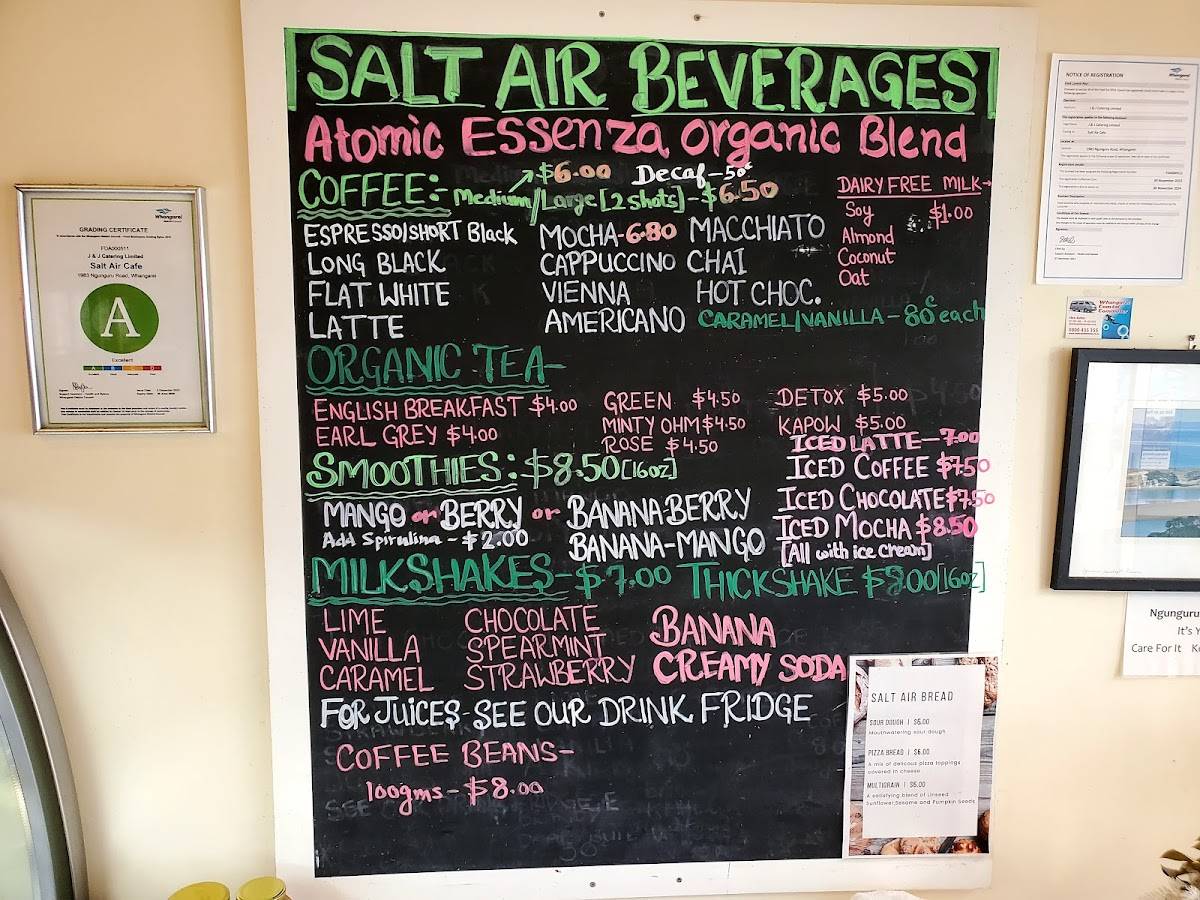 SALT AIR BEVERAGES
Atomic Essenza Organic Blend
COFFEE:- Medium $6.00 Decaf-50¢
/Large [2 shots]-$6.50
ESPRESSO/SHORT Black
LONG BLACK
FLAT WHITE
LATTE
MOCHA-6.80
CAPPUCCINO
VIENNA
AMERICANO
MACCHIATO
CHAI
HOT CHOC.
CARAMEL/VANILLA-80¢ each
DAIRY FREE MILK→
Soy $1.00
Almond
Coconut
Oat
ORGANIC TEA-
ENGLISH BREAKFAST $4.00
EARL GREY $4.00
GREEN $4.50
MINTY OHM $4.50
ROSE $4.50
DETOX $5.00
KAPOW $5.00
ICED LATTE-7.00
ICED COFFEE $7.50
ICED CHOCOLATE $7.50
ICED MOCHA $8.50
[All with ice cream]
SMOOTHIES: $8.50 [16oz]
MANGO or BERRY or BANANA-BERRY
Add Spirulina - $2.00
BANANA-MANGO
MILKSHAKES-$7.00 THICKSHAKE $9.00 [16oz]
LIME
VANILLA
CARAMEL
CHOCOLATE
SPEARMINT
STRAWBERRY
BANANA
CREAMY SODA
FOR JUICES-SEE OUR DRINK FRIDGE
COFFEE BEANS-
100gms-$8.00
SALT AIR BREAD
SOUR DOUGH | $6.00
Mouthwatering sour dough
PIZZA BREAD | $6.00
A mix of delicous pizza toppings
covered in cheese
MULTIGRAIN | $6.00
A satisfying blend of Linseed
Sunflower,Sesame and Pumpkin Seeds
Whangarei
GRADING CERTIFICATE
FOA000511
J & J Catering Limited
Salt Air Cafe
1983 Ngunguru Road, Whangarei
A
Excellent
Whangarei
NOTICE OF REGISTRATION
J & J Catering Limited
Salt Air Cafe
1983 Ngunguru Road, Whangarei
Whangarei
Coastal
Commuter
0800 435 355
Ngunguru
It's Y
Care For It K